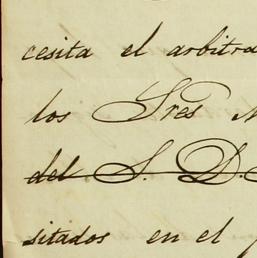 cesita el arbitra
los Sres
del S. D.
sitados en el